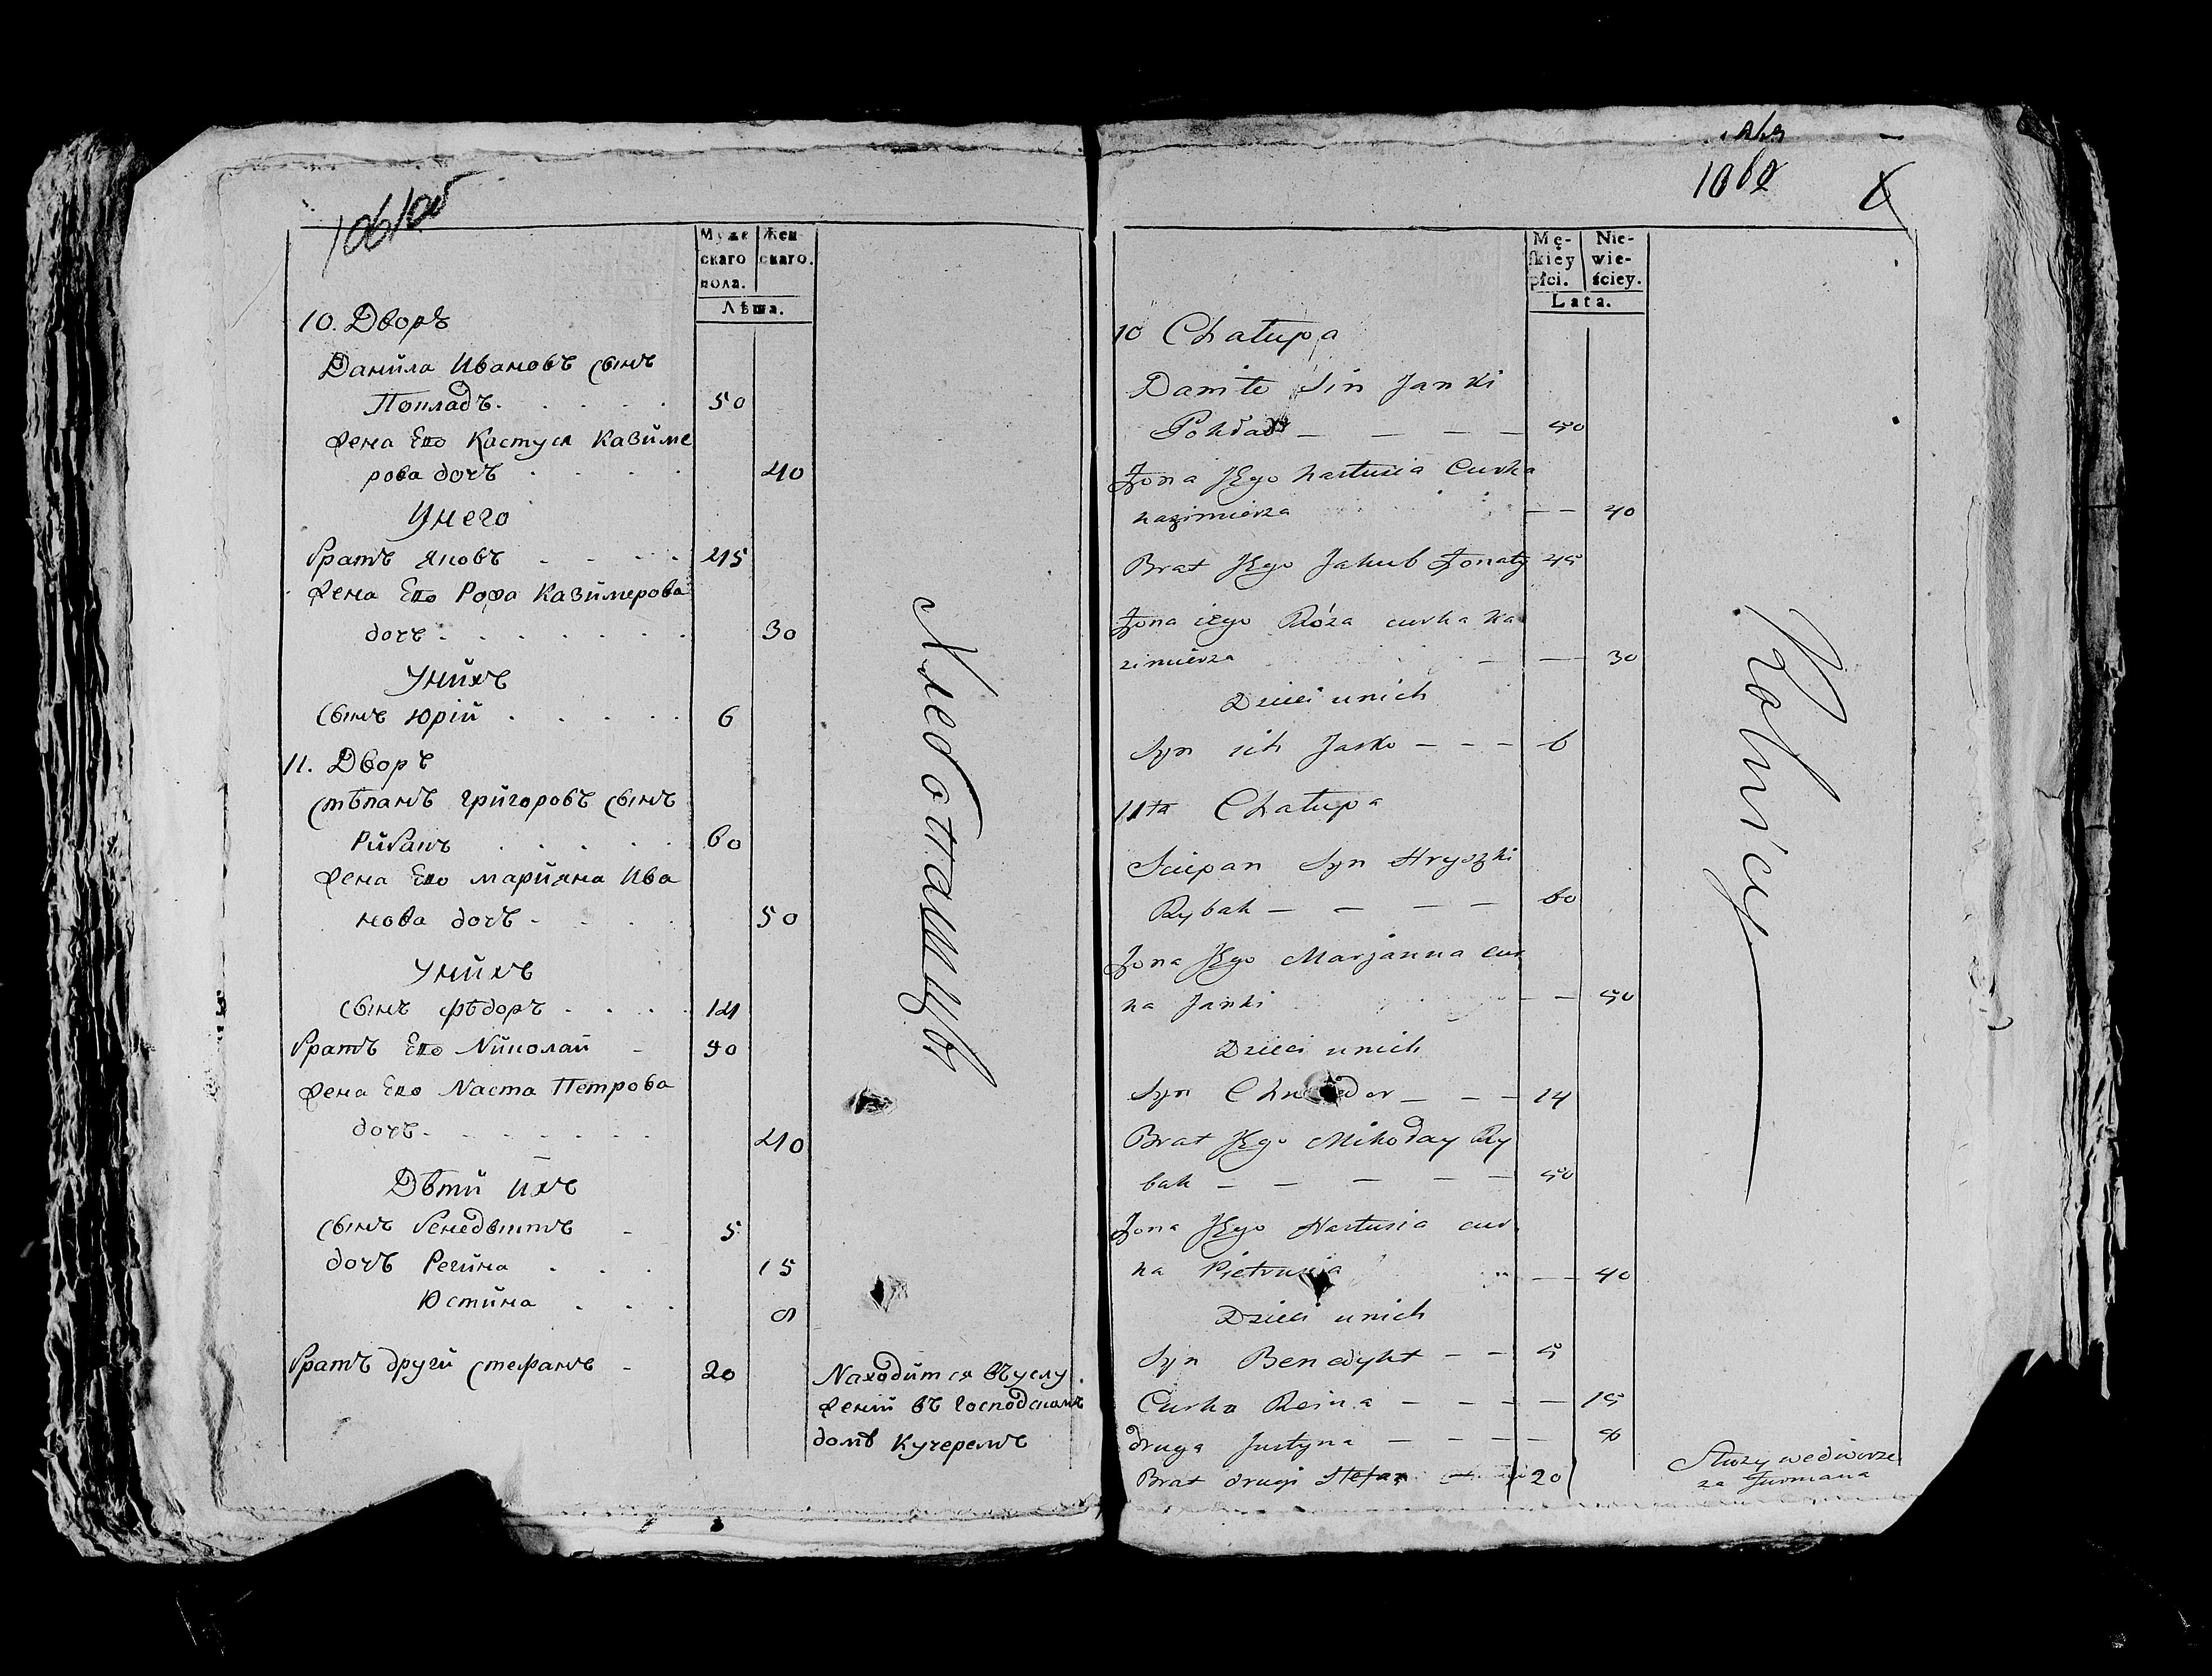 1061об
Муже
скаго
пола.
Жен
скаго.
Лѣта.
10. Дворъ
Данила Ивановъ сынъ
Покладъ. 50
жена Его Кастуся Казиме
рова дочъ 40
Унего
братъ Яковъ 45
жена Его Рожа Казимерова
дочъ 30
Унихъ
сынъ Юрій 6
11. Дворъ
стѣпанъ григоровъ сынъ
Рибакъ 60
жена Его марияна Ива
нова дочъ 50
Унихъ
сынъ фѣдоръ 14
братъ Его Николай 50
жена Его Наста Петрова
дочъ 40
Дѣти ихъ
сынъ бенедыктъ 5
дочъ Регина 15
Юстина 8
братъ други стефанъ 20
Хлебопашцы
Находится въуслу
жении въ господскомъ
домѣ Кучеремъ
1062
Mę-
skiey
płci.
Nie-
wie-
ściey.
Lata.
10 Chałupa
Daniło Sin Janki
Pokład 50
Żona JEgo Kastusia Curka
Kazimierza 40
Brat JEgo Jakub Żonaty 45
Żona iego Róza curka Ka
zimierza 30
Dzieci unich
Syn ich Jurko 6
11ta Chałupa
Sciepan Syn Hryszki
Rybak 60
Żona JEgo Marjanna cur
ka Janki 50
Dzieci unich
Syn 14
Brat JEgo Mikołay Ry
bak 50
Żona JEgo Nastusia cur
ka Pietrusia 40
Dzieci unich
Syn Benedykt 5
Curka Reina 15
druga Justyna 8
Brat drugi Stefan 20
Rolnicy
Służy wedworze
za Furmana